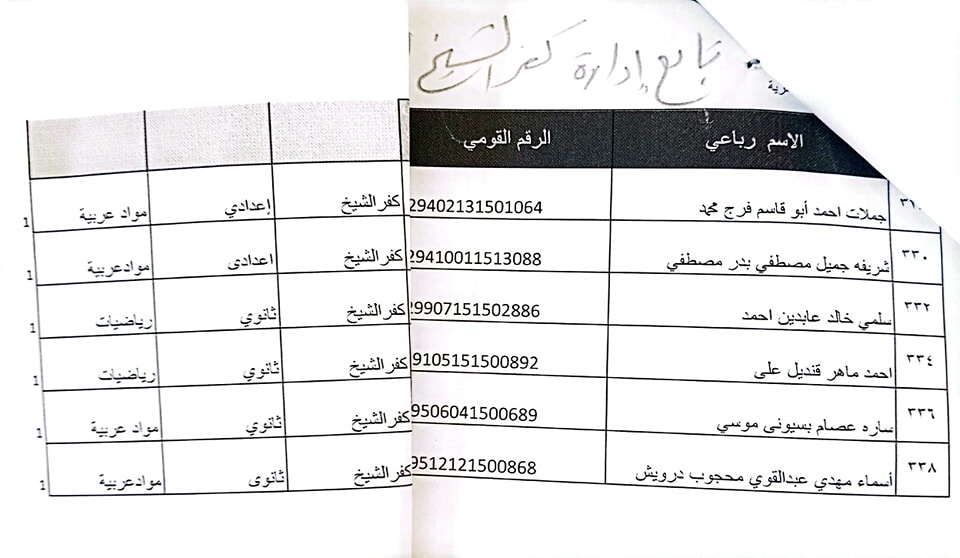 تابع إدارة كفر الشيخ
رية
الاسم رباعي الرقم القومي
٣١٠ جملات احمد أبو قاسم فرج محمد 29402131501064 كفر الشيخ إعدادي مواد عربية 1
٣٣٠ شريفه جميل مصطفي بدر مصطفي 29410011513088 كفر الشيخ اعدادى مواد عربية 1
٣٣٢ سلمي خالد عابدين احمد 29907151502886 كفر الشيخ ثانوي رياضيات 1
٣٣٤ احمد ماهر قنديل على 9105151500892 كفر الشيخ ثانوي رياضيات 1
٣٣٦ ساره عصام بسيونى موسي 9506041500689 كفر الشيخ ثانوي مواد عربية 1
٣٣٨ أسماء مهدي عبدالقوي محجوب درويش 9512121500868 كفر الشيخ ثانوى مواد عربية 1